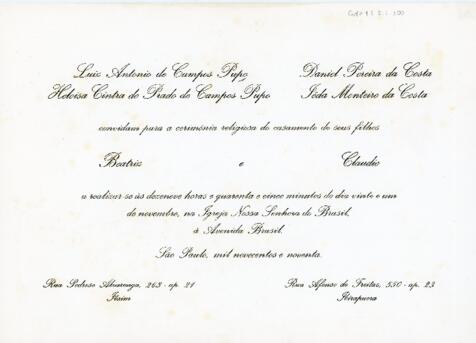 Luiz Antonio de Campos Pupo
Heloisa Cintra do Prado de Campos Pupo
Daniel Pereira da Costa
Iêda Monteiro da Costa
convidam para a cerimônia religiosa do casamento de seus filhos
Beatriz e Claudio
a realizar se às dezenove horas e quarenta e cinco minutos do dia vinte e um
de novembro, na Igreja Nossa Senhora do Brasil,
à Avenida Brasil.
São Paulo, mil novecentos e noventa.
Rua Pedroso Alvarenga, 263 - ap. 21
Itaim
Rua Afonso de Freitas, 550 - ap. 23
Ibirapuera